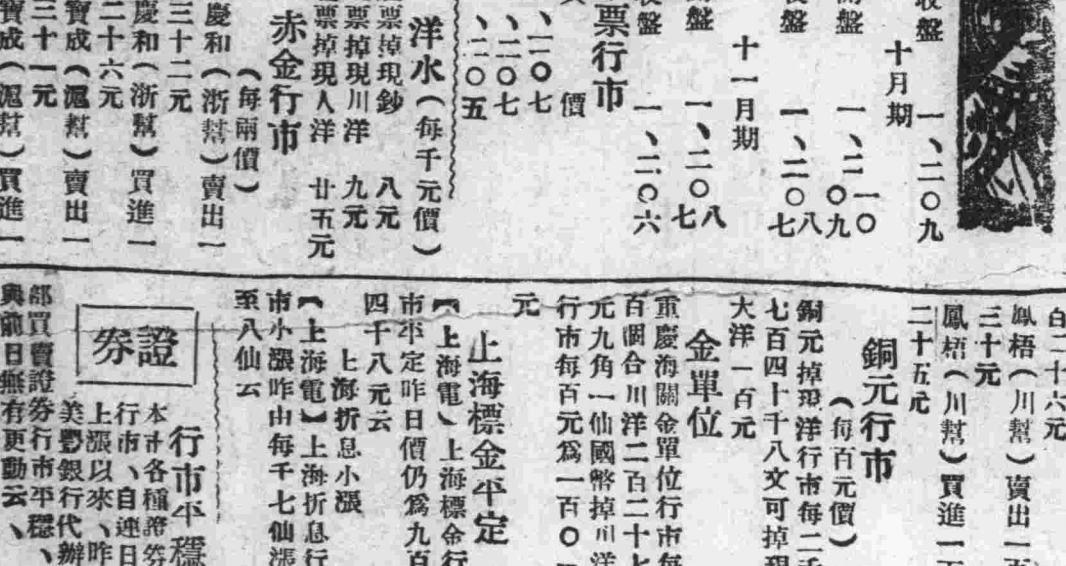 收盤　一、二〇九
十月期
開盤　一、二一〇
〇九
收盤　一、二〇八
七
十一月期
盤　一、二〇八
七
收盤　一、二〇六
票行市
價
、一〇七
、二〇七
、二〇五
洋水（每千元價）
票掉現鈔　八元
票掉現川洋　九元
票掉現人洋　廿五元
赤金行市
（每兩價）
慶和（浙幫）賣出一
三十二元
慶和（浙幫）買進一
二十六元
寶成（滬幫）賣出一
三十一元
寶成（滬幫）買進一
百二十六元
鳳梧（川幫）賣出一百
三十元
鳳梧（川幫）買進一百
二十五元
銅元行市
（每百元價）
銅元掉現洋行市每二千
七百四十千八文可掉現
大洋一百元
金單位
重慶海關金單位行市每
百個合川洋二百二十七
元九角一仙國幣掉川洋
行市每百元爲一百〇
元
上海標金平定
【上海電】上海標金行
市平定昨日價仍爲九百
四十八元云
上海折息小漲
【上海電】上海折息行
市小漲昨由每千七仙漲
至八仙云
證券
行市平穩
本市各種證券
行市、自連日
上漲以來、昨
美豐銀行代辦
部買賣證券行市平穩、
與前日無有更動云、